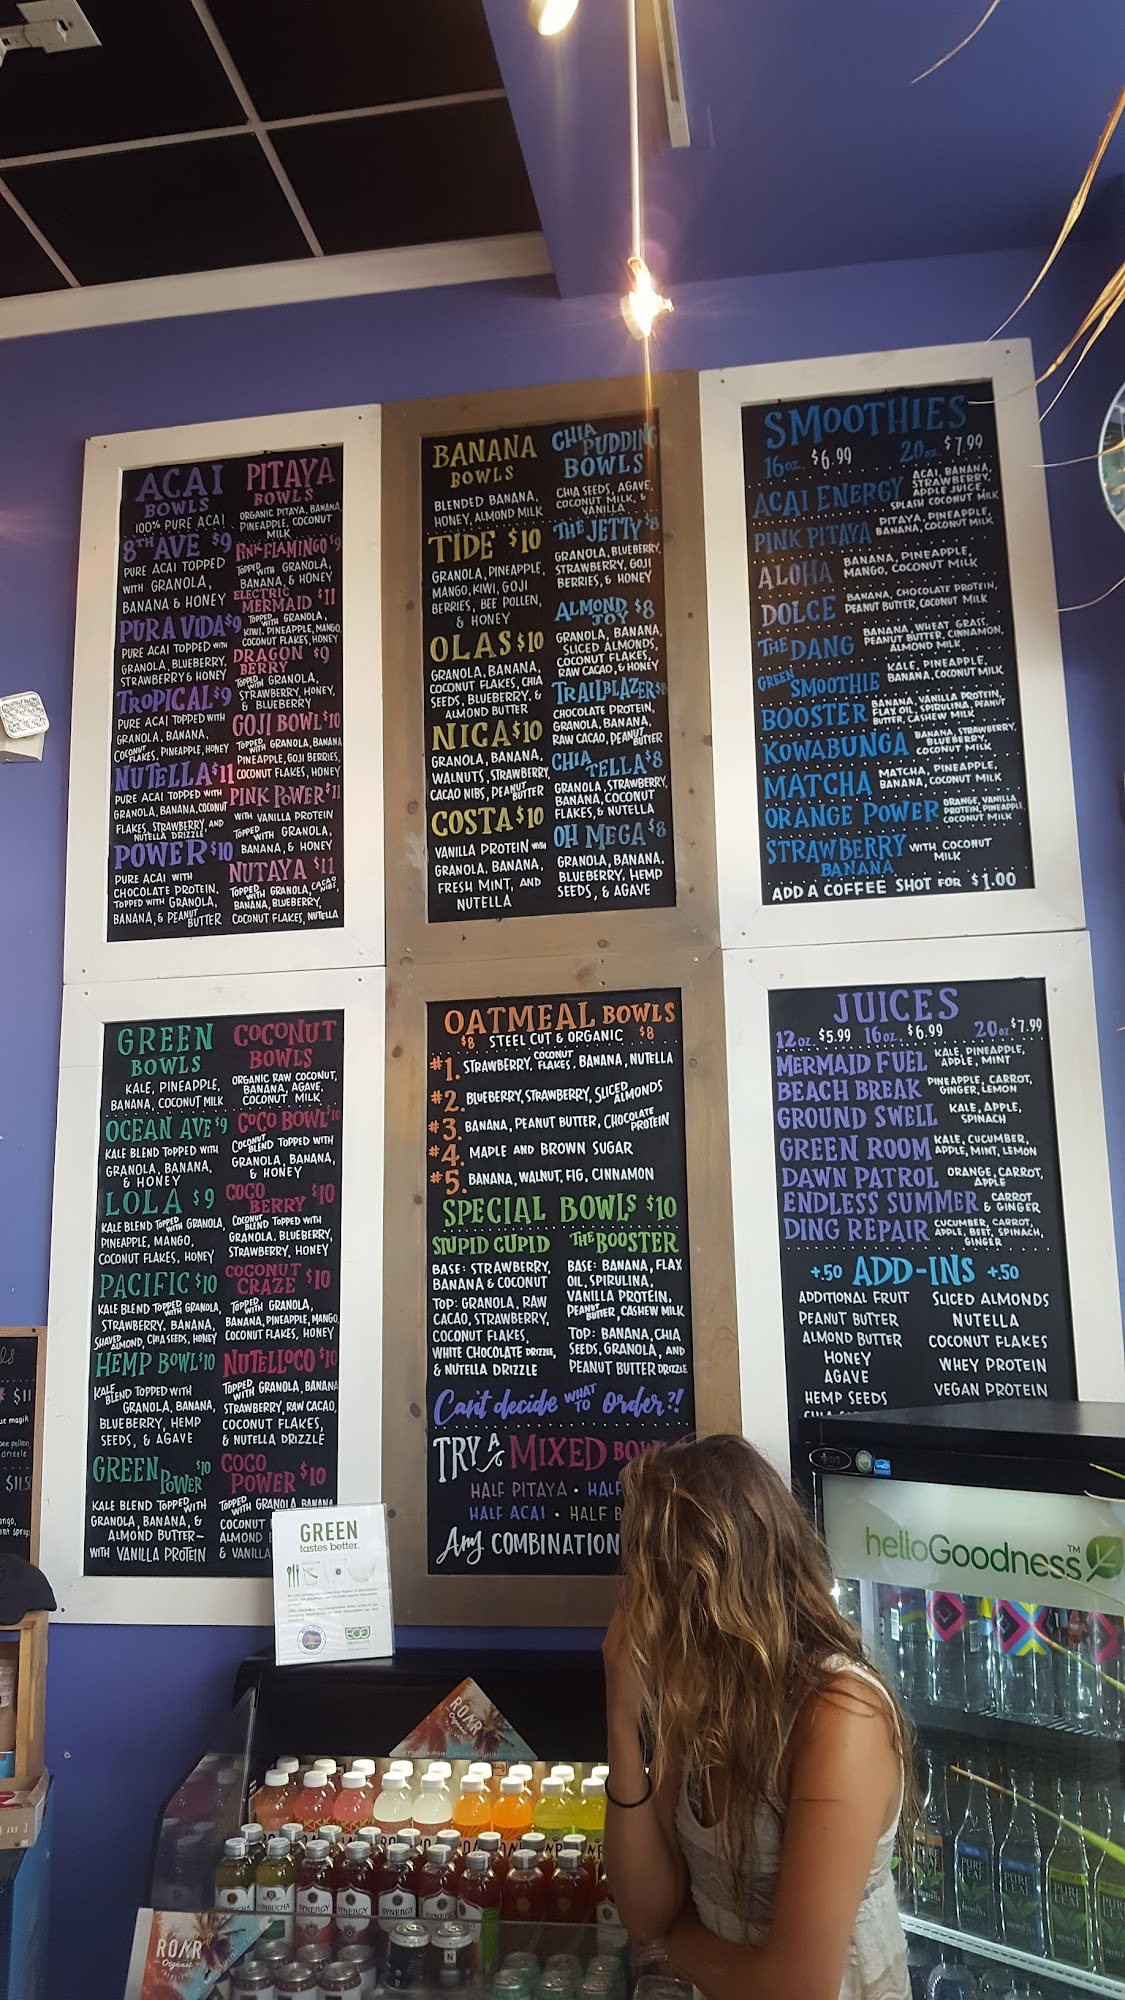 ACAI
BOWLS
100% PURE ACAI
8TH AVE $9
PURE ACAI TOPPED
WITH GRANOLA,
BANANA & HONEY
PURA VIDA $9
PURE ACAI TOPPED WITH
GRANOLA, BLUEBERRY,
STRAWBERRY & HONEY
TROPICAL $9
PURE ACAI TOPPED WITH
GRANOLA, BANANA,
COCONUT FLAKES, PINEAPPLE, HONEY
NUTELLA $11
PURE ACAI TOPPED WITH
GRANOLA, BANANA, COCONUT
FLAKES, STRAWBERRY, AND
NUTELLA DRIZZLE
POWER $10
PURE ACAI WITH
CHOCOLATE PROTEIN.
TOPPED WITH GRANOLA,
BANANA, & PEANUT BUTTER
PITAYA
BOWLS
ORGANIC PITAYA, BANANA,
PINEAPPLE, COCONUT
MILK
PINK FLAMINGO $9
TOPPED WITH GRANOLA,
BANANA, & HONEY
ELECTRIC
MERMAID $11
TOPPED WITH GRANOLA,
KIWI, PINEAPPLE, MANGO,
COCONUT FLAKES, HONEY
DRAGON $9
BERRY
TOPPED WITH GRANOLA,
STRAWBERRY, HONEY,
& BLUEBERRY
GOJI BOWL $10
TOPPED WITH GRANOLA, BANANA
PINEAPPLE, GOJI BERRIES,
COCONUT FLAKES, HONEY
PINK POWER $11
WITH VANILLA PROTEIN
TOPPED WITH GRANOLA,
BANANA, & HONEY
NUTAYA $11
TOPPED WITH GRANOLA, CACAO NIBS,
BANANA, BLUEBERRY,
COCONUT FLAKES, NUTELLA
BANANA
BOWLS
BLENDED BANANA,
HONEY, ALMOND MILK
TIDE $10
GRANOLA, PINEAPPLE,
MANGO, KIWI, GOJI
BERRIES, BEE POLLEN,
& HONEY
OLAS $10
GRANOLA, BANANA,
COCONUT FLAKES, CHIA
SEEDS, BLUEBERRY, &
ALMOND BUTTER
NICA $10
GRANOLA, BANANA,
WALNUTS, STRAWBERRY,
CACAO NIBS, PEANUT BUTTER
COSTA $10
VANILLA PROTEIN WITH
GRANOLA, BANANA,
FRESH MINT, AND
NUTELLA
CHIA
PUDDING
BOWLS
CHIA SEEDS, AGAVE,
COCONUT MILK, &
VANILLA
THE JETTY $8
GRANOLA, BLUEBERRY,
STRAWBERRY, GOJI
BERRIES, & HONEY
ALMOND
JOY $8
GRANOLA, BANANA,
SLICED ALMONDS,
COCONUT FLAKES,
RAW CACAO, & HONEY
TRAILBLAZER $8
CHOCOLATE PROTEIN,
GRANOLA, BANANA,
RAW CACAO, PEANUT BUTTER
CHIA $8
TELLA
GRANOLA, STRAWBERRY,
BANANA, COCONUT
FLAKES, & NUTELLA
OH MEGA $8
GRANOLA, BANANA,
BLUEBERRY, HEMP
SEEDS, & AGAVE
SMOOTHIES
16oz. $6.99 20oz. $7.99
ACAI ENERGY ACAI, BANANA,
STRAWBERRY,
APPLE JUICE,
SPLASH COCONUT MILK
PINK PITAYA PITAYA, PINEAPPLE,
BANANA, COCONUT MILK
ALOHA BANANA, PINEAPPLE,
MANGO, COCONUT MILK
DOLCE BANANA, CHOCOLATE PROTEIN,
PEANUT BUTTER, COCONUT MILK
THE DANG BANANA, WHEAT GRASS,
PEANUT BUTTER, CINNAMON,
ALMOND MILK
GREEN SMOOTHIE KALE, PINEAPPLE,
BANANA, COCONUT MILK
BOOSTER BANANA, VANILLA PROTEIN,
FLAX OIL, SPIRULINA, PEANUT
BUTTER, CASHEW MILK
KOWABUNGA BANANA, STRAWBERRY,
BLUEBERRY,
COCONUT MILK
MATCHA MATCHA, PINEAPPLE,
BANANA, COCONUT MILK
ORANGE POWER ORANGE, VANILLA
PROTEIN, PINEAPPLE,
COCONUT MILK
STRAWBERRY WITH COCONUT
BANANA MILK
ADD A COFFEE SHOT FOR $1.00
GREEN
BOWLS
KALE, PINEAPPLE,
BANANA, COCONUT MILK
OCEAN AVE $9
KALE BLEND TOPPED WITH
GRANOLA, BANANA,
& HONEY
LOLA $9
KALE BLEND TOPPED WITH GRANOLA,
PINEAPPLE, MANGO,
COCONUT FLAKES, HONEY
PACIFIC $10
KALE BLEND TOPPED WITH GRANOLA,
STRAWBERRY, BANANA,
SHAVED ALMOND, CHIA SEEDS, HONEY
HEMP BOWL $10
KALE BLEND TOPPED WITH
GRANOLA, BANANA,
BLUEBERRY, HEMP
SEEDS, & AGAVE
GREEN POWER $10
KALE BLEND TOPPED WITH
GRANOLA, BANANA, &
ALMOND BUTTER-
WITH VANILLA PROTEIN
COCONUT
BOWLS
ORGANIC RAW COCONUT,
BANANA, AGAVE,
COCONUT MILK
COCO BOWL $10
COCONUT BLEND TOPPED WITH
GRANOLA, BANANA,
& HONEY
COCO
BERRY $10
COCONUT BLEND TOPPED WITH
GRANOLA, BLUEBERRY,
STRAWBERRY, HONEY
COCONUT
CRAZE $10
TOPPED WITH GRANOLA,
BANANA, PINEAPPLE, MANGO
COCONUT FLAKES, HONEY
NUTELLOCO $10
TOPPED WITH GRANOLA, BANANA
STRAWBERRY, RAW CACAO,
COCONUT FLAKES,
& NUTELLA DRIZZLE
COCO
POWER $10
TOPPED WITH GRANOLA, BANANA
COCONUT
ALMOND
& VANILLA
OATMEAL BOWLS
$8 STEEL CUT & ORGANIC $8
#1. STRAWBERRY, COCONUT FLAKES, BANANA, NUTELLA
#2. BLUEBERRY, STRAWBERRY, SLICED ALMONDS
#3. BANANA, PEANUT BUTTER, CHOCOLATE PROTEIN
#4. MAPLE AND BROWN SUGAR
#5. BANANA, WALNUT, FIG, CINNAMON
SPECIAL BOWLS $10
STUPID CUPID
BASE: STRAWBERRY,
BANANA & COCONUT
TOP: GRANOLA, RAW
CACAO, STRAWBERRY,
COCONUT FLAKES,
WHITE CHOCOLATE DRIZZLE,
& NUTELLA DRIZZLE
THE BOOSTER
BASE: BANANA, FLAX
OIL, SPIRULINA,
VANILLA PROTEIN,
PEANUT BUTTER, CASHEW MILK
TOP: BANANA, CHIA
SEEDS, GRANOLA, AND
PEANUT BUTTER DRIZZLE
Can't decide WHAT TO order?!
TRY A MIXED BOWL
HALF PITAYA • HALF
HALF ACAI • HALF B
Any COMBINATION
JUICES
12oz. $5.99 16oz. $6.99 20oz. $7.99
MERMAID FUEL KALE, PINEAPPLE,
APPLE, MINT
BEACH BREAK PINEAPPLE, CARROT,
GINGER, LEMON
GROUND SWELL KALE, APPLE,
SPINACH
GREEN ROOM KALE, CUCUMBER,
APPLE, MINT, LEMON
DAWN PATROL ORANGE, CARROT,
APPLE
ENDLESS SUMMER CARROT
& GINGER
DING REPAIR CUCUMBER, CARROT,
APPLE, BEET, SPINACH,
GINGER
+.50 ADD-INS +.50
ADDITIONAL FRUIT
PEANUT BUTTER
ALMOND BUTTER
HONEY
AGAVE
HEMP SEEDS
SLICED ALMONDS
NUTELLA
COCONUT FLAKES
WHEY PROTEIN
VEGAN PROTEIN
$11
bee pollen,
drizzle
$11.50
GREEN
tastes better.
ECO
PRODUCTS
helloGoodness™
ROAR
Organic
SYNERGY
SYNERGY
SYNERGY
ROAR
Organic
PURE
LEAF
PURE
LEAF